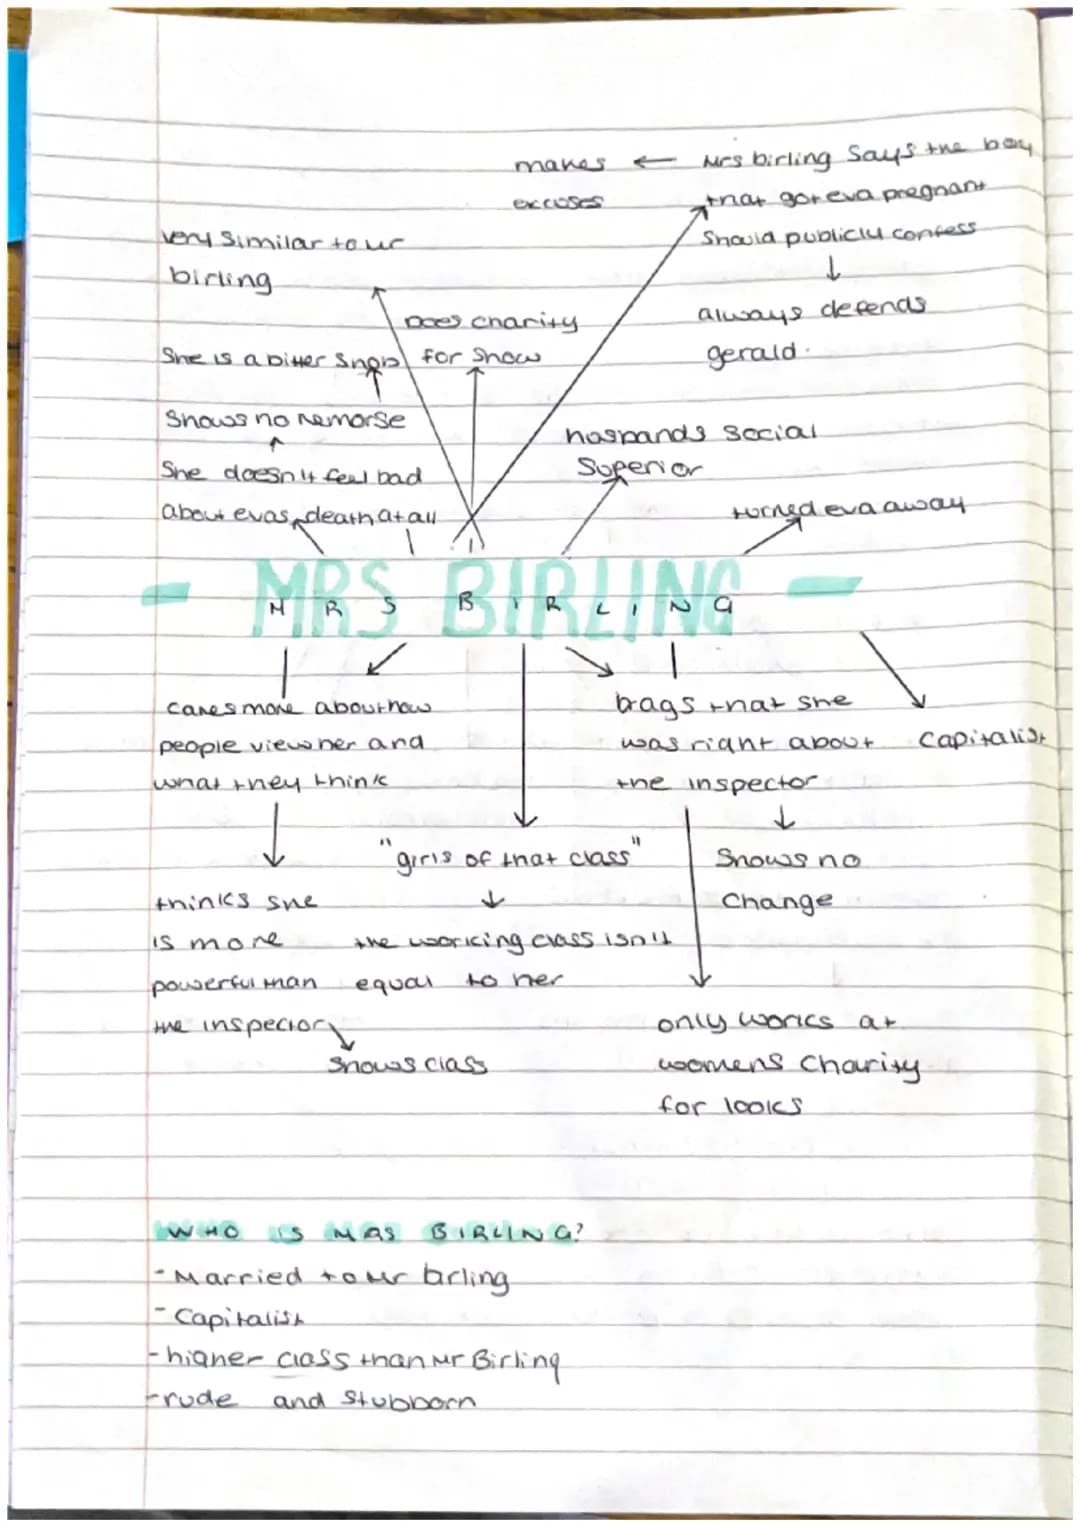 makes ← Mrs birling Says the boy
excuses
that got eva pregnant
Should publicly confess
↓
always defends
gerald.
very Similar to mr
birling
Does charity
for Show
She is a bitter Snob
Shows no remorse
She doesn't feel bad
about evas death at all
husbands Social
Superior
turned eva away
- MRS BIRLING -
M R S B I R L I N G
cares more about how
people view her and
what they think
thinks she
is more
powerful than
the inspector
Shows class
"girls of that class"
↓
the working class isn't
equal to her
brags that she
was right about
the inspector
↓
Shows no
Change
only works at
womens Charity
for looks
Capitalist
WHO IS MRS BIRLING?
- Married to Mr birling
- Capitalist
- higher class than Mr Birling
- rude and Stubborn